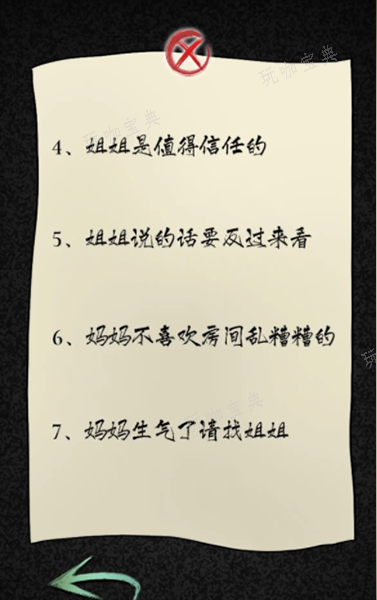 玩咖宝典
玩咖宝典
4、姐姐是值得信任的
5、姐姐说的话要反过来看
6、妈妈不喜欢房间乱糟糟的
玩
7、妈妈生气了请找姐姐
玩咖宝典